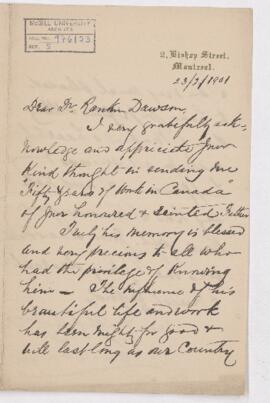 McGILL UNIVERSITY
ARCHIVES
ACC. NO. 976/23
REF. 5
2, Bishop Street,
Montreal.
23/7/1901
Dear Dr. Rankin Dawson,
I very gratefully ack-
nowledge and appreciate your
kind thought in sending me
Fifty Years of Work in Canada
of your honoured & sainted Father
Truly his memory is blessed
and very precious to all who
had the privilege of knowing
him — The influence of his
beautiful life and work
has been mighty for good &
will last long as our Country